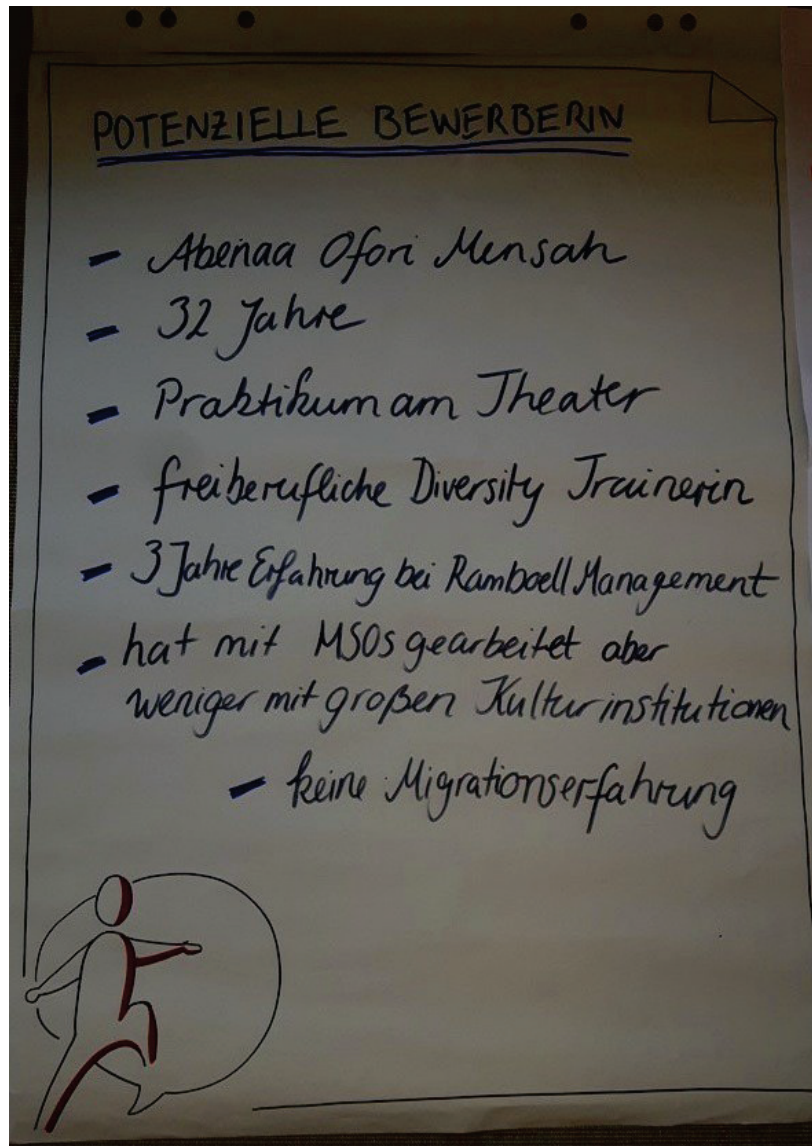 POTENZIELLE BEWERBERIN
- Abenaa Ofori Mensah
- 32 Jahre
- Praktikum am Theater
- freiberufliche Diversity Trainerin
- 3 Jahre Erfahrung bei Ramboell Management
- hat mit MSOs gearbeitet aber
weniger mit großen Kulturinstitutionen
- keine Migrationserfahrung